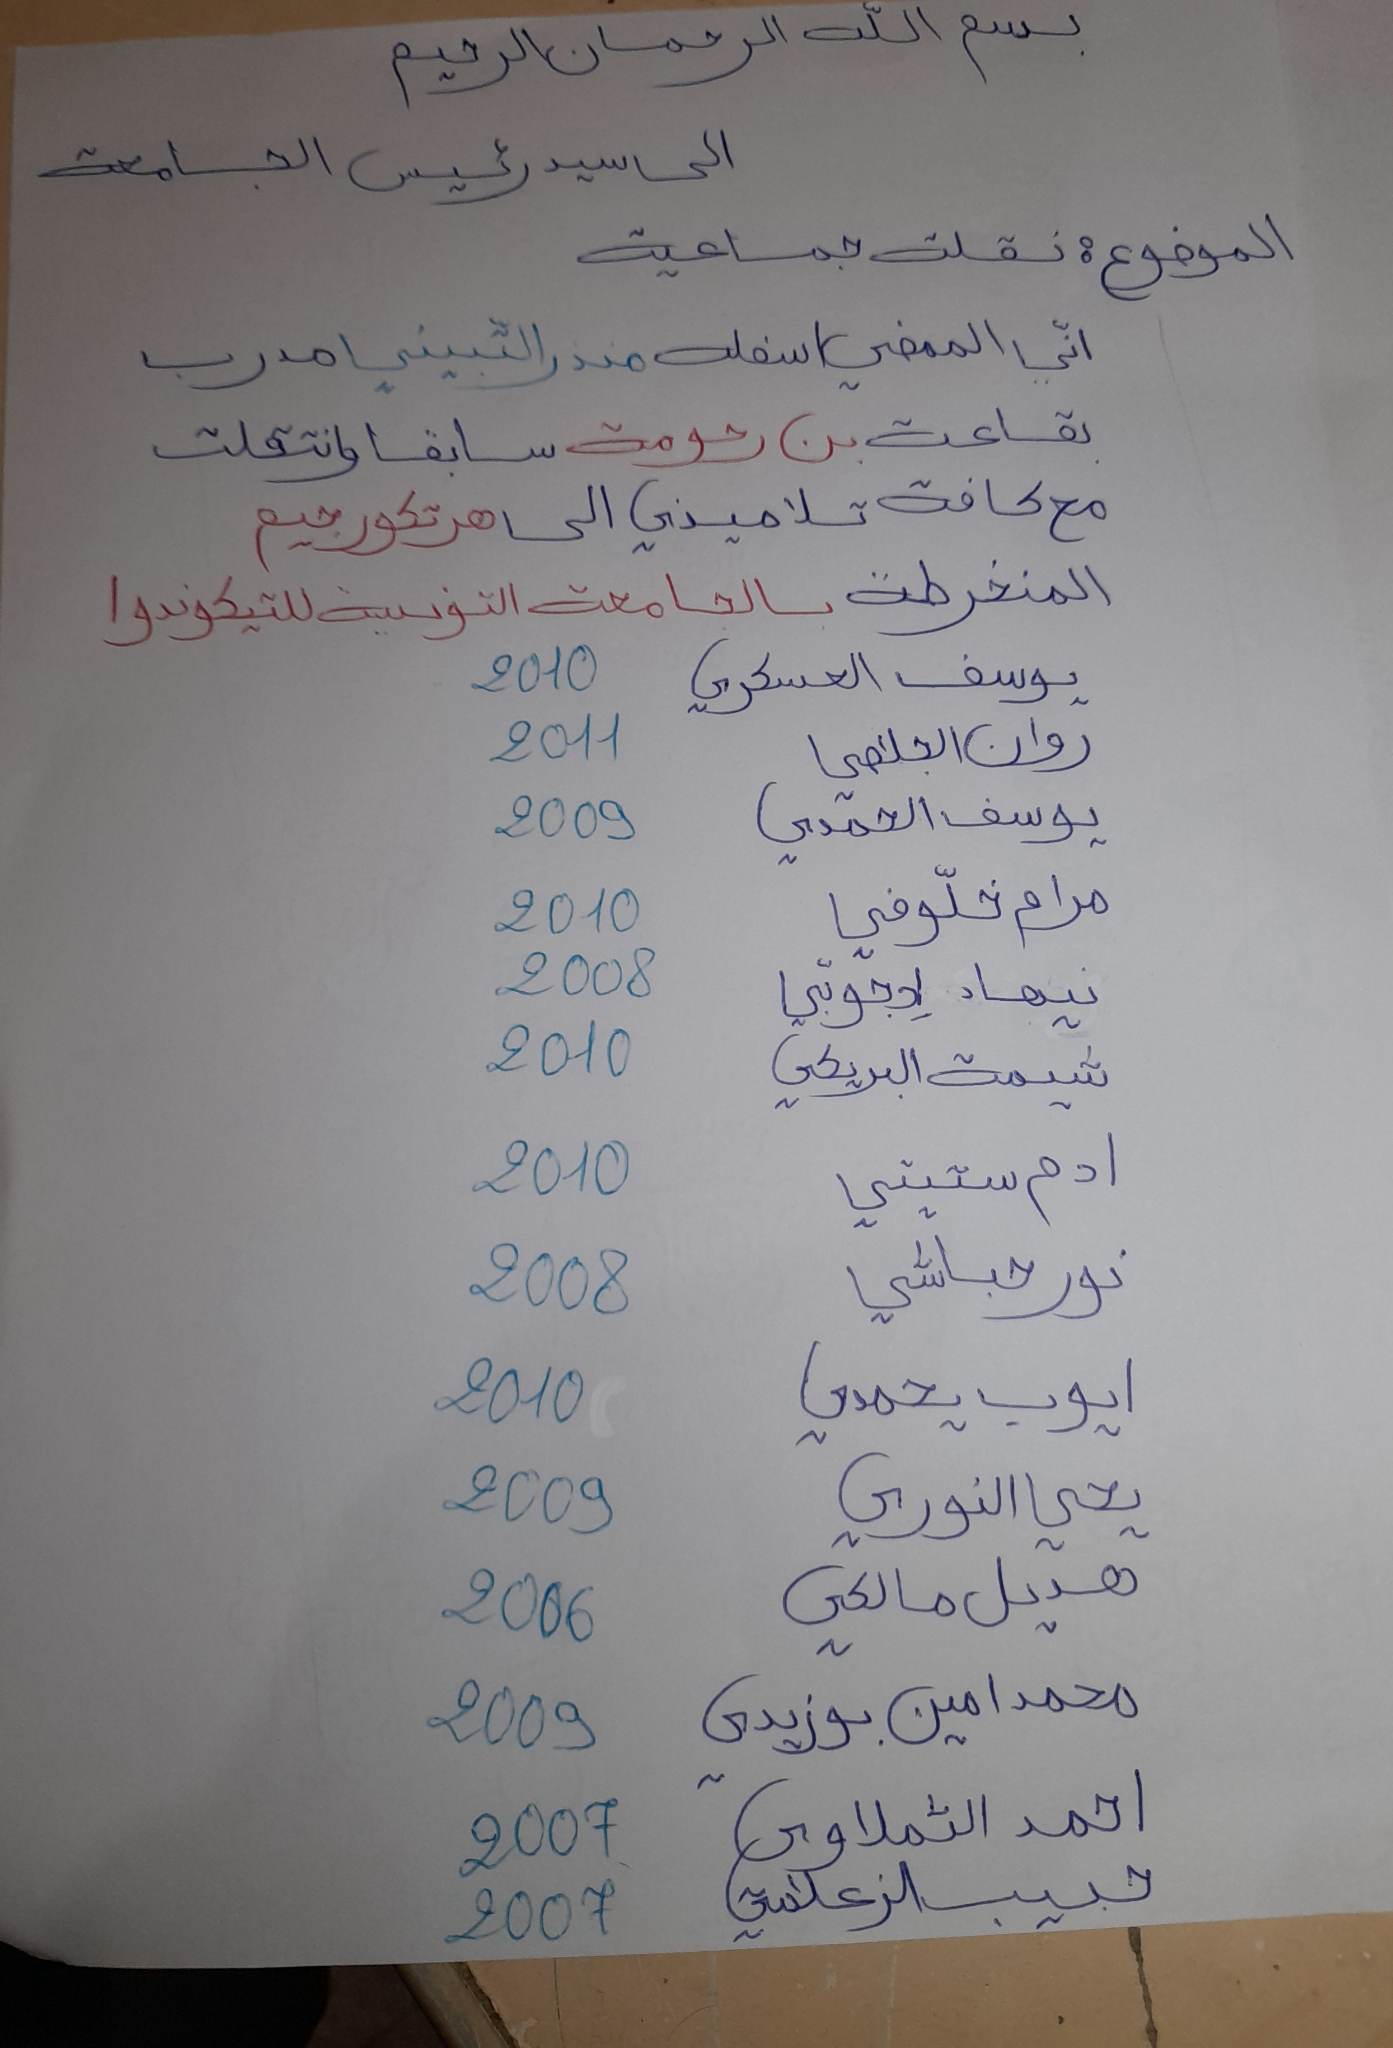 بسم الله الرحمان الرحيم
الى سيد رئيس الجامعة
الموضوع: نقلة جماعية
انّي الممضي اسفله منذر التّبيني مدرب
بقاعة بن رحومة سابقا وانتقلت
مع كافة تلاميذي الى هرتكور جيم
المنخرطة بالجامعة التونسية للتيكوندوا
يوسف العسكري 2010
روان الجلاصي 2011
يوسف الحمّدي 2009
مرام خلّوفي 2010
نيهاد 2008
شيمة البريكي 2010
ادم ستيتي 2010
نور حباشي 2008
ايوب يحمدي 2010
يحي النوري 2009
هديل مالكي 2006
محمد امين بوزيدي 2009
احمد الثملاوي 2007
حبيب 2007